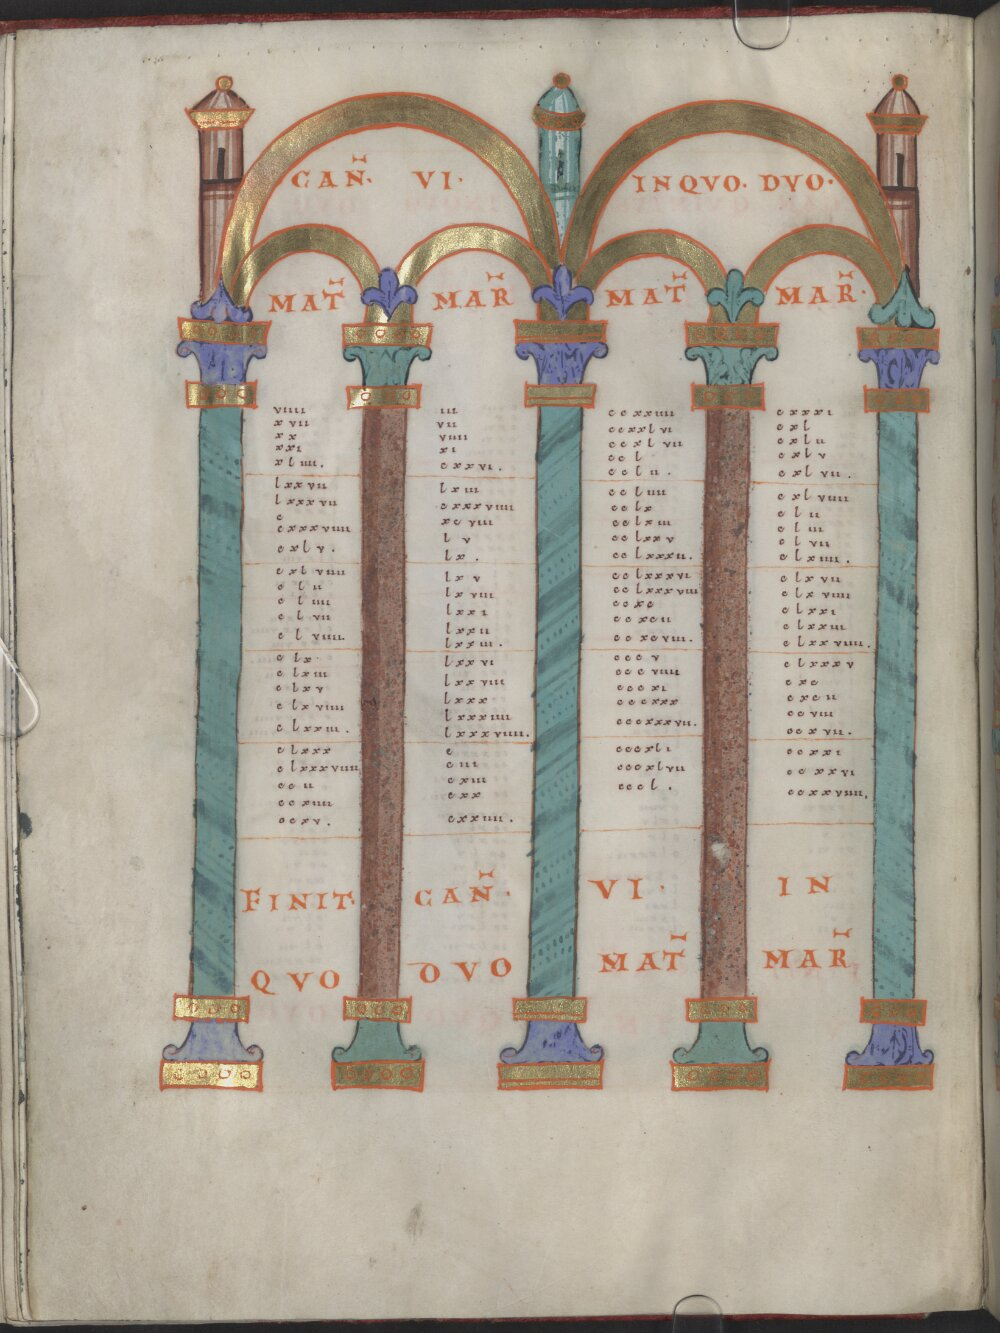 CAN̄. VI. IN QVO. DVO.
MAT̄ MAR̄ MAT̄ MAR̄.
viiii
xvii
xx
xxi
xliiii.
lxxvii
lxxxvii
c
cxxxviiii
cxlv.
cxlviiii
clii
cliiii
clvii
clviiii.
clx
clxiii
clxv
clxviiii
clxxiii.
clxxx
clxxxviiii
ccii
ccxiiii
ccxv.
iii
vii
viiii
xi
cxxvi.
lxiii
cxxxviiii
xcviii
lv
lx.
lxv
lxviiii
lxxi
lxxii
lxxiii.
lxxvi
lxxviii
lxxx
lxxxiiii
lxxxviiii.
c
ciii
cxiii
cxx
cxxiiii.
ccxxiiii
ccxlvi
ccxlvii
ccl
cclii.
ccliiii
cclx
cclxiii
cclxxv
cclxxxii.
cclxxxvi
cclxxxviiii
ccxc
ccxcii
ccxcviii.
cccv
cccviiii
cccxi
cccxxx
cccxxxvii.
cccxli
cccxlvii
cccl.
cxxxi
cxl
cxlii
cxlv
cxlvii.
cxlviiii
clii
cliii
clvii
clxiiii.
clxvii
clxviiii
clxxi
clxxiii
clxxviiii.
clxxxv
cxc
cxcii
ccviii
ccxvii.
ccxxi
ccxxvi
ccxxviiii.
FINIT. CAN̄. VI. IN
QVO DVO MAT̄ MAR̄